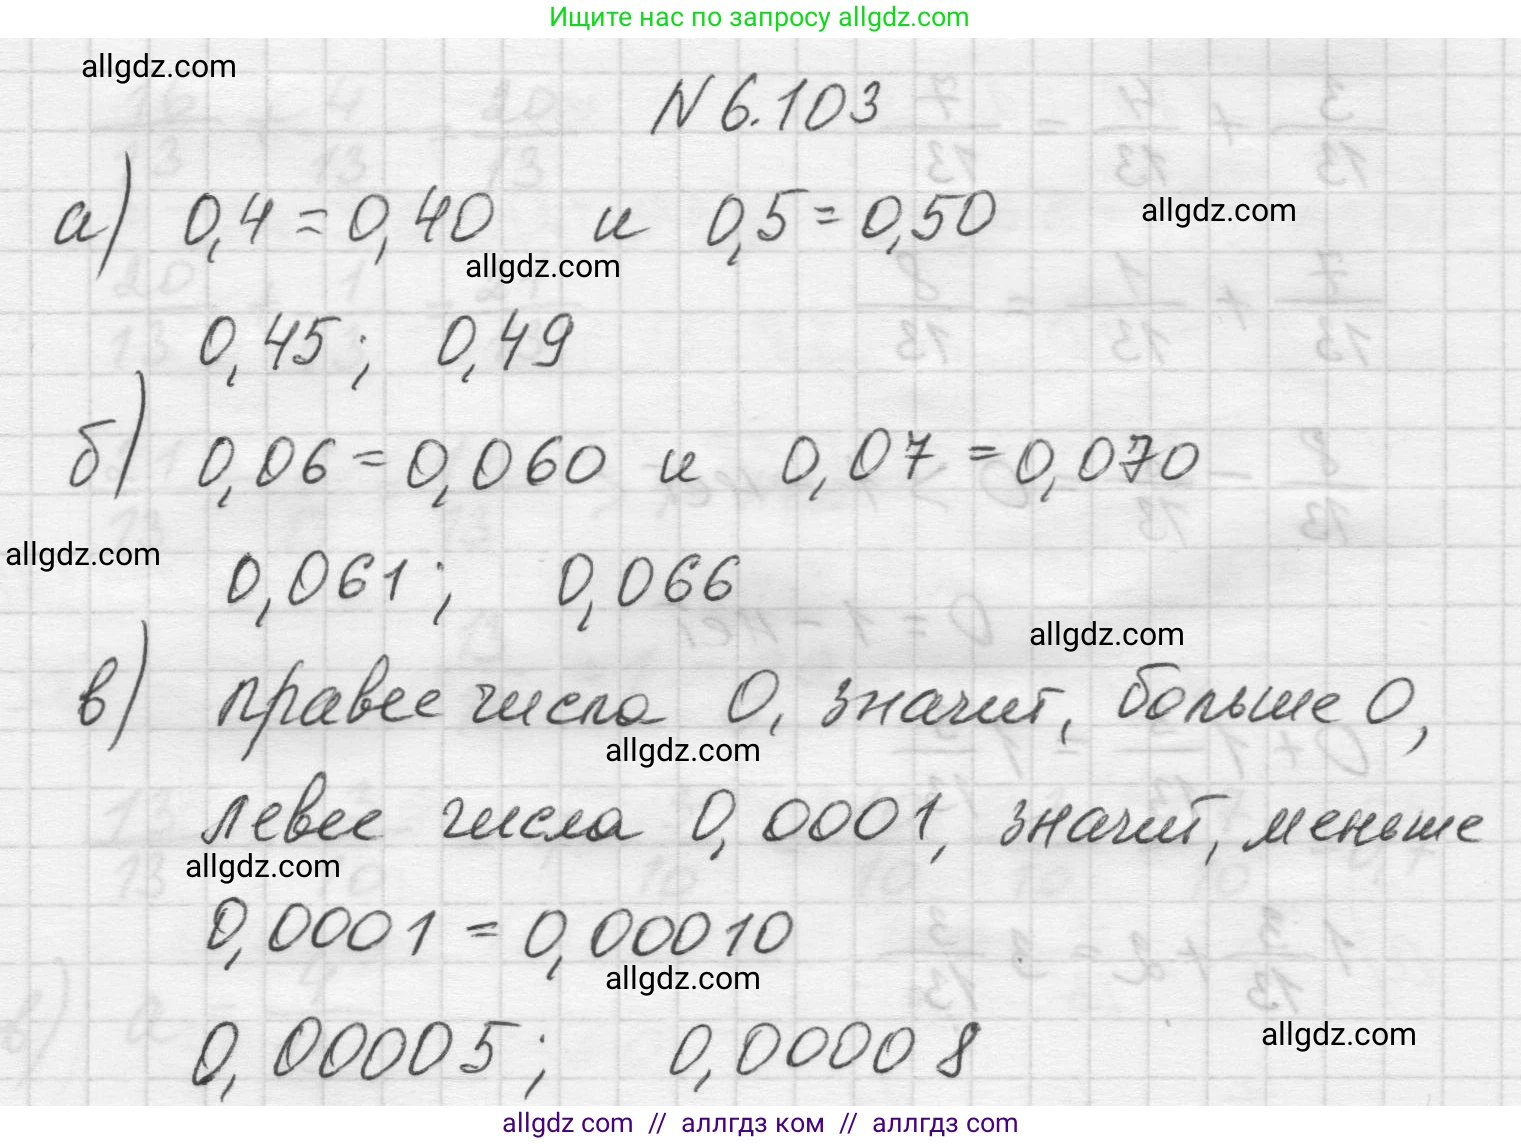 Ищите нас по запросу allgdz.com
allgdz.com
N 6.103
а) 0,4 = 0,40 и 0,5 = 0,50
allgdz.com
allgdz.com
0,45; 0,49
б) 0,06 = 0,060 и 0,07 = 0,070
allgdz.com
0,061; 0,066
allgdz.com
в) правее числа 0, значит, больше 0,
allgdz.com
левее числа 0,0001, значит, меньше
allgdz.com
0,0001 = 0,00010
allgdz.com
0,00005; 0,00008
allgdz.com
allgdz com // аллгдз ком // аллгдз com